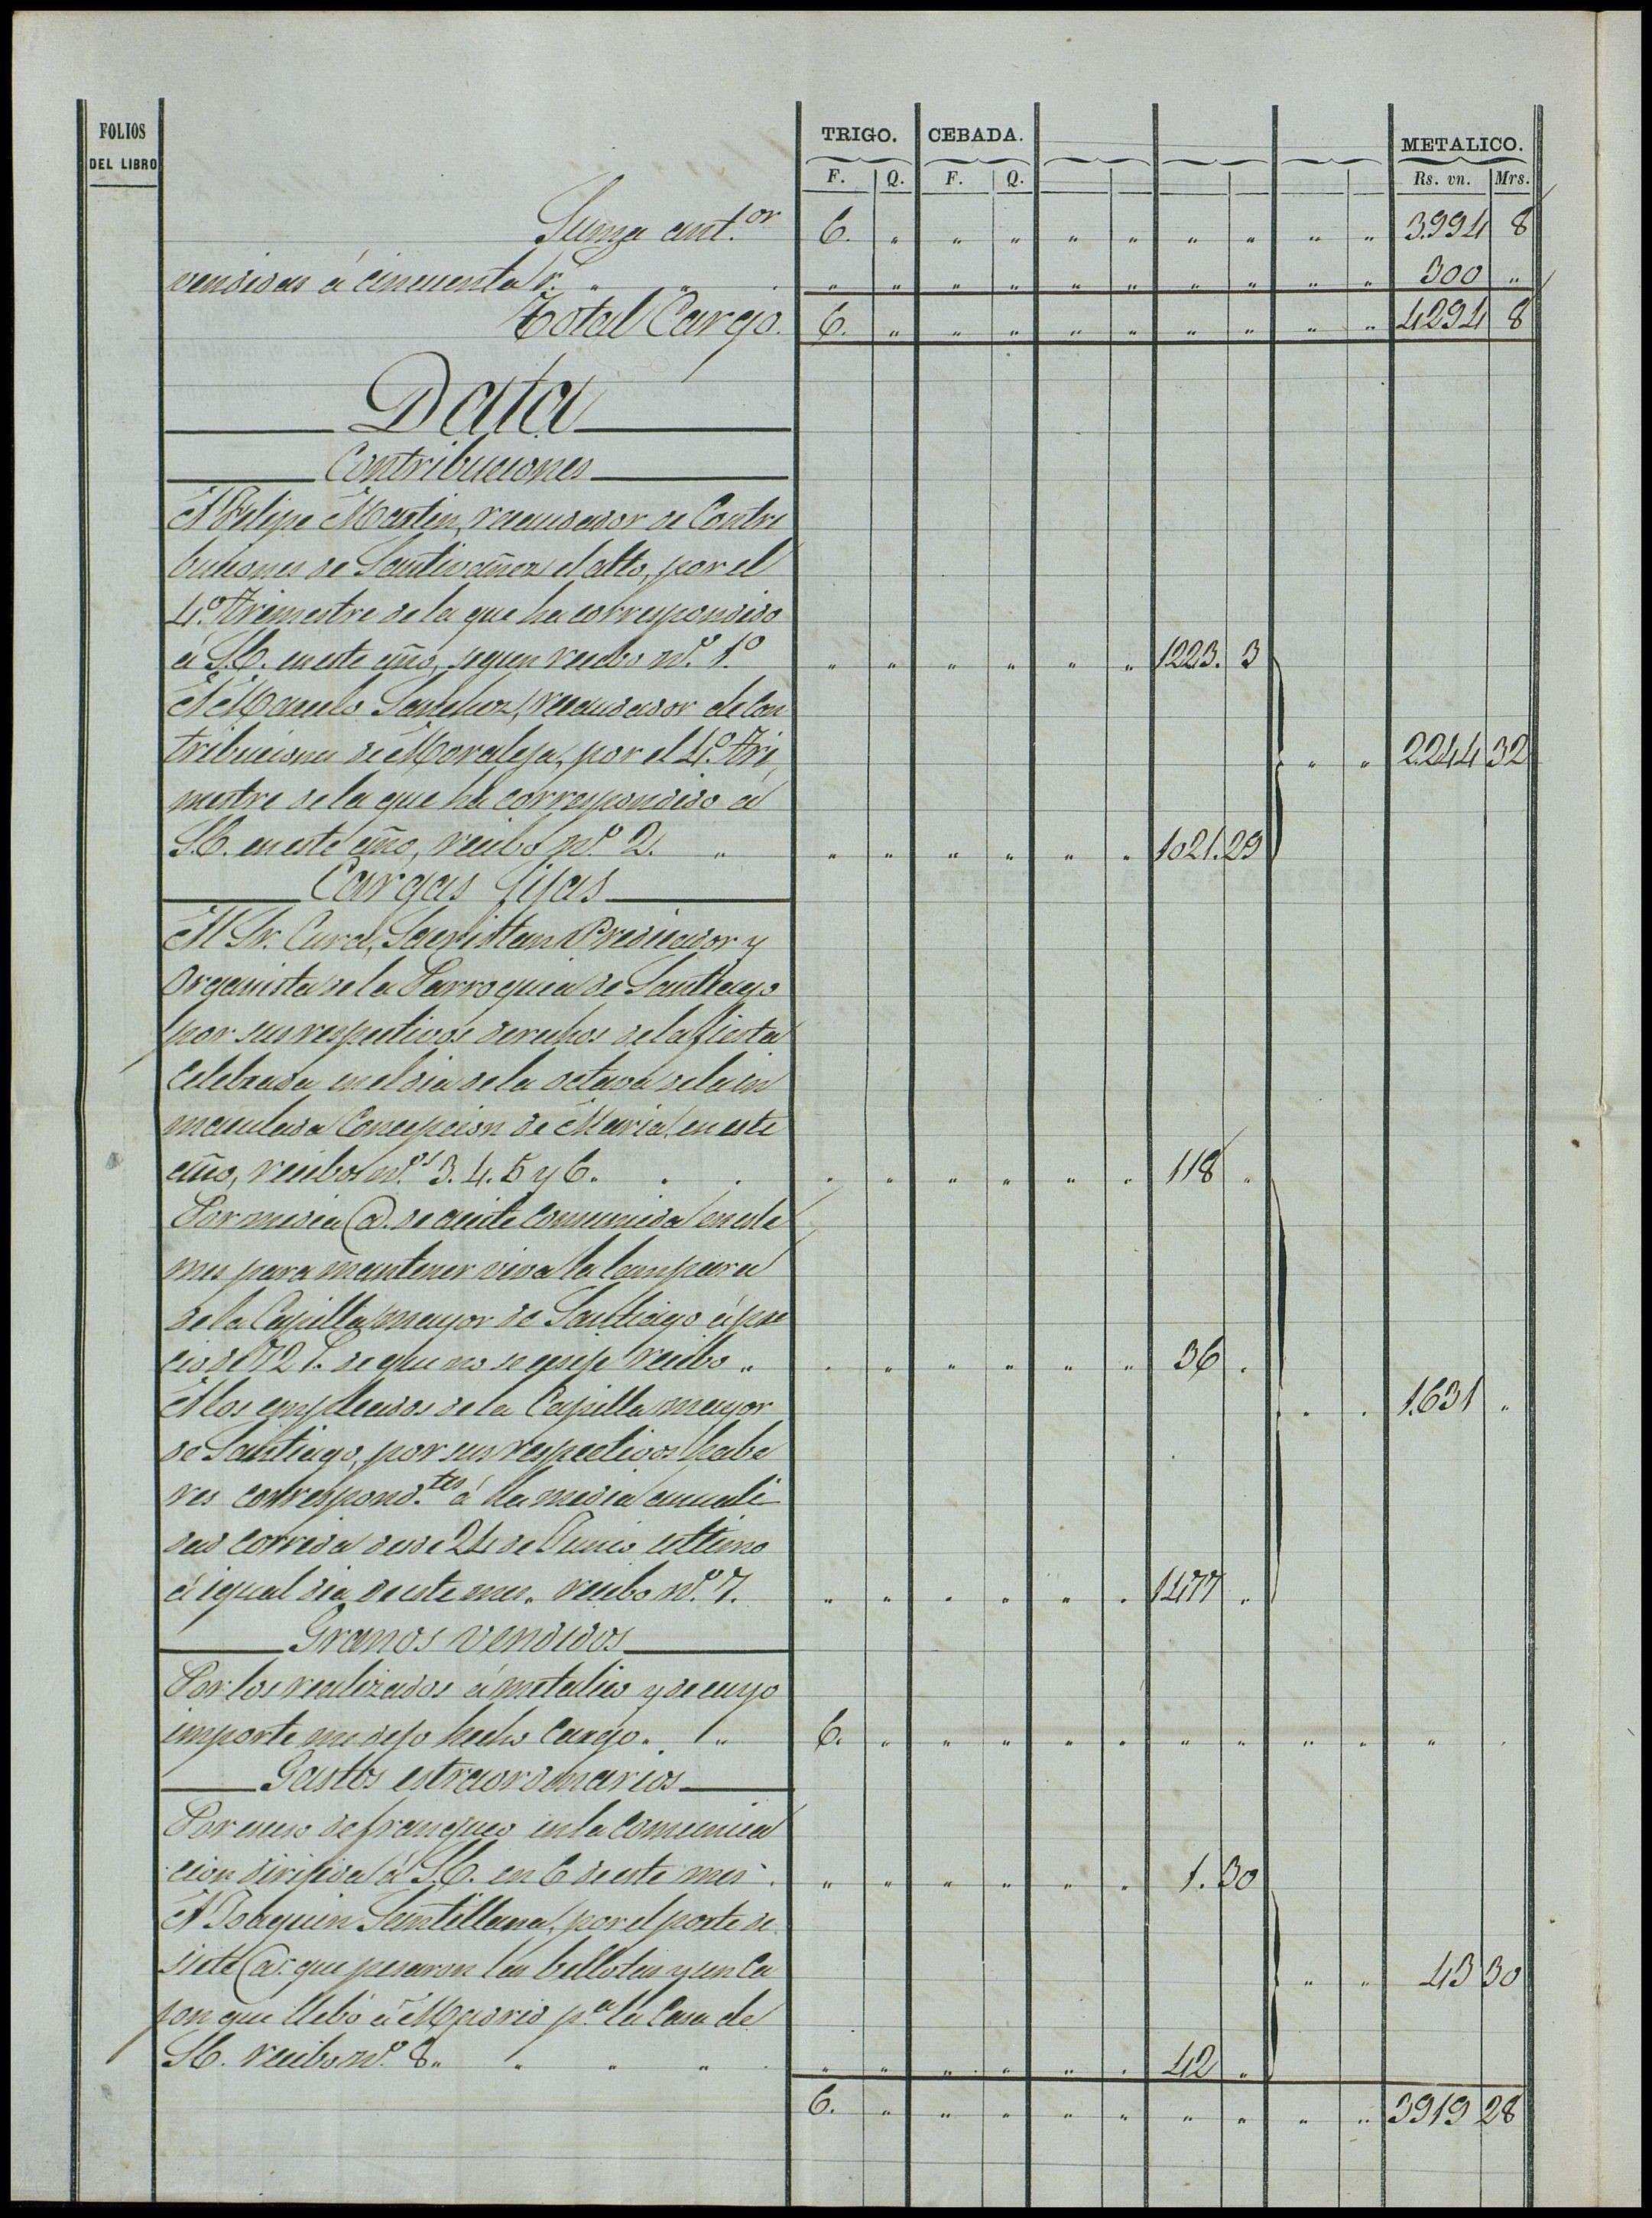 FOLIOS DEL LIBRO
TRIGO. CEBADA. METALICO.
F. Q. F. Q. Rs. vn. Mrs.
Suma ant.or 6. " " " " " " " " " 3.994 8
vendidas á cincuenta r. " " " " " " " " " " 300 "
Total Cargo. 6. " " " " " " " " " 4294 8
Data
Contribuciones
A Felipe Martin, recaudador de Contri
buciones de Santivañez el alto, por el
4.º trimestre de la que ha correspondido
á S.E. en este año, segun recibo n.º 1º " " " " " " 1223. 3
A Marcelo Sanchez, recaudador de Con
tribuciones de Moraleja, por el 4.º tri, " " 2.244 32
mestre de la que ha correspondido á
S.E. en este año, recibo n.º 2. " " " " " " " 1021. 29
Cargas fijas
Al Sr. Cura, Sacristan, Predicador y
Organista de la Parroquia de Santiago
por sus respectivos derechos de la fiesta
celebrada en el dia de la octava de la in
maculada Concepcion de Maria, en este
año, recibos n.os 3. 4. 5 y 6. " " " " " " 118 "
Por media @. de aceite consumida en este
mes para mantener viva la lampara
de la Capilla mayor de Santiago á pre
cio de 72 r. de que no se exije recibo " " " " " " " 36 "
A los empleados de la Capilla mayor " " 1.631 "
de Santiago, por sus respectivos habe
res correspond.tes á la media anuali
dad corrida desde 24 de Junio ultimo
á igual dia de este mes. recibo n.º 7. " " " " " " 1477 "
Granos vendidos
Por los realizados á metalico y de cuyo
importe me dejo hecho Cargo. " 6. " " " " " " " " " " "
Gastos estraordinarios
Por esceso de franqueo en la comunica
cion dirijida á S.E. en 6 de este mes. " " " " " " 1. 30
A Joaquin Santillana, por el porte de
siete @.s que pesaron las bellotas y un ca " " 43 30
jon que llebó á Madrid p.a la Casa de
S.E. recibo n.º 8 " " " " " " " " " " 42 "
6. " " " " " " " " " 3919 28